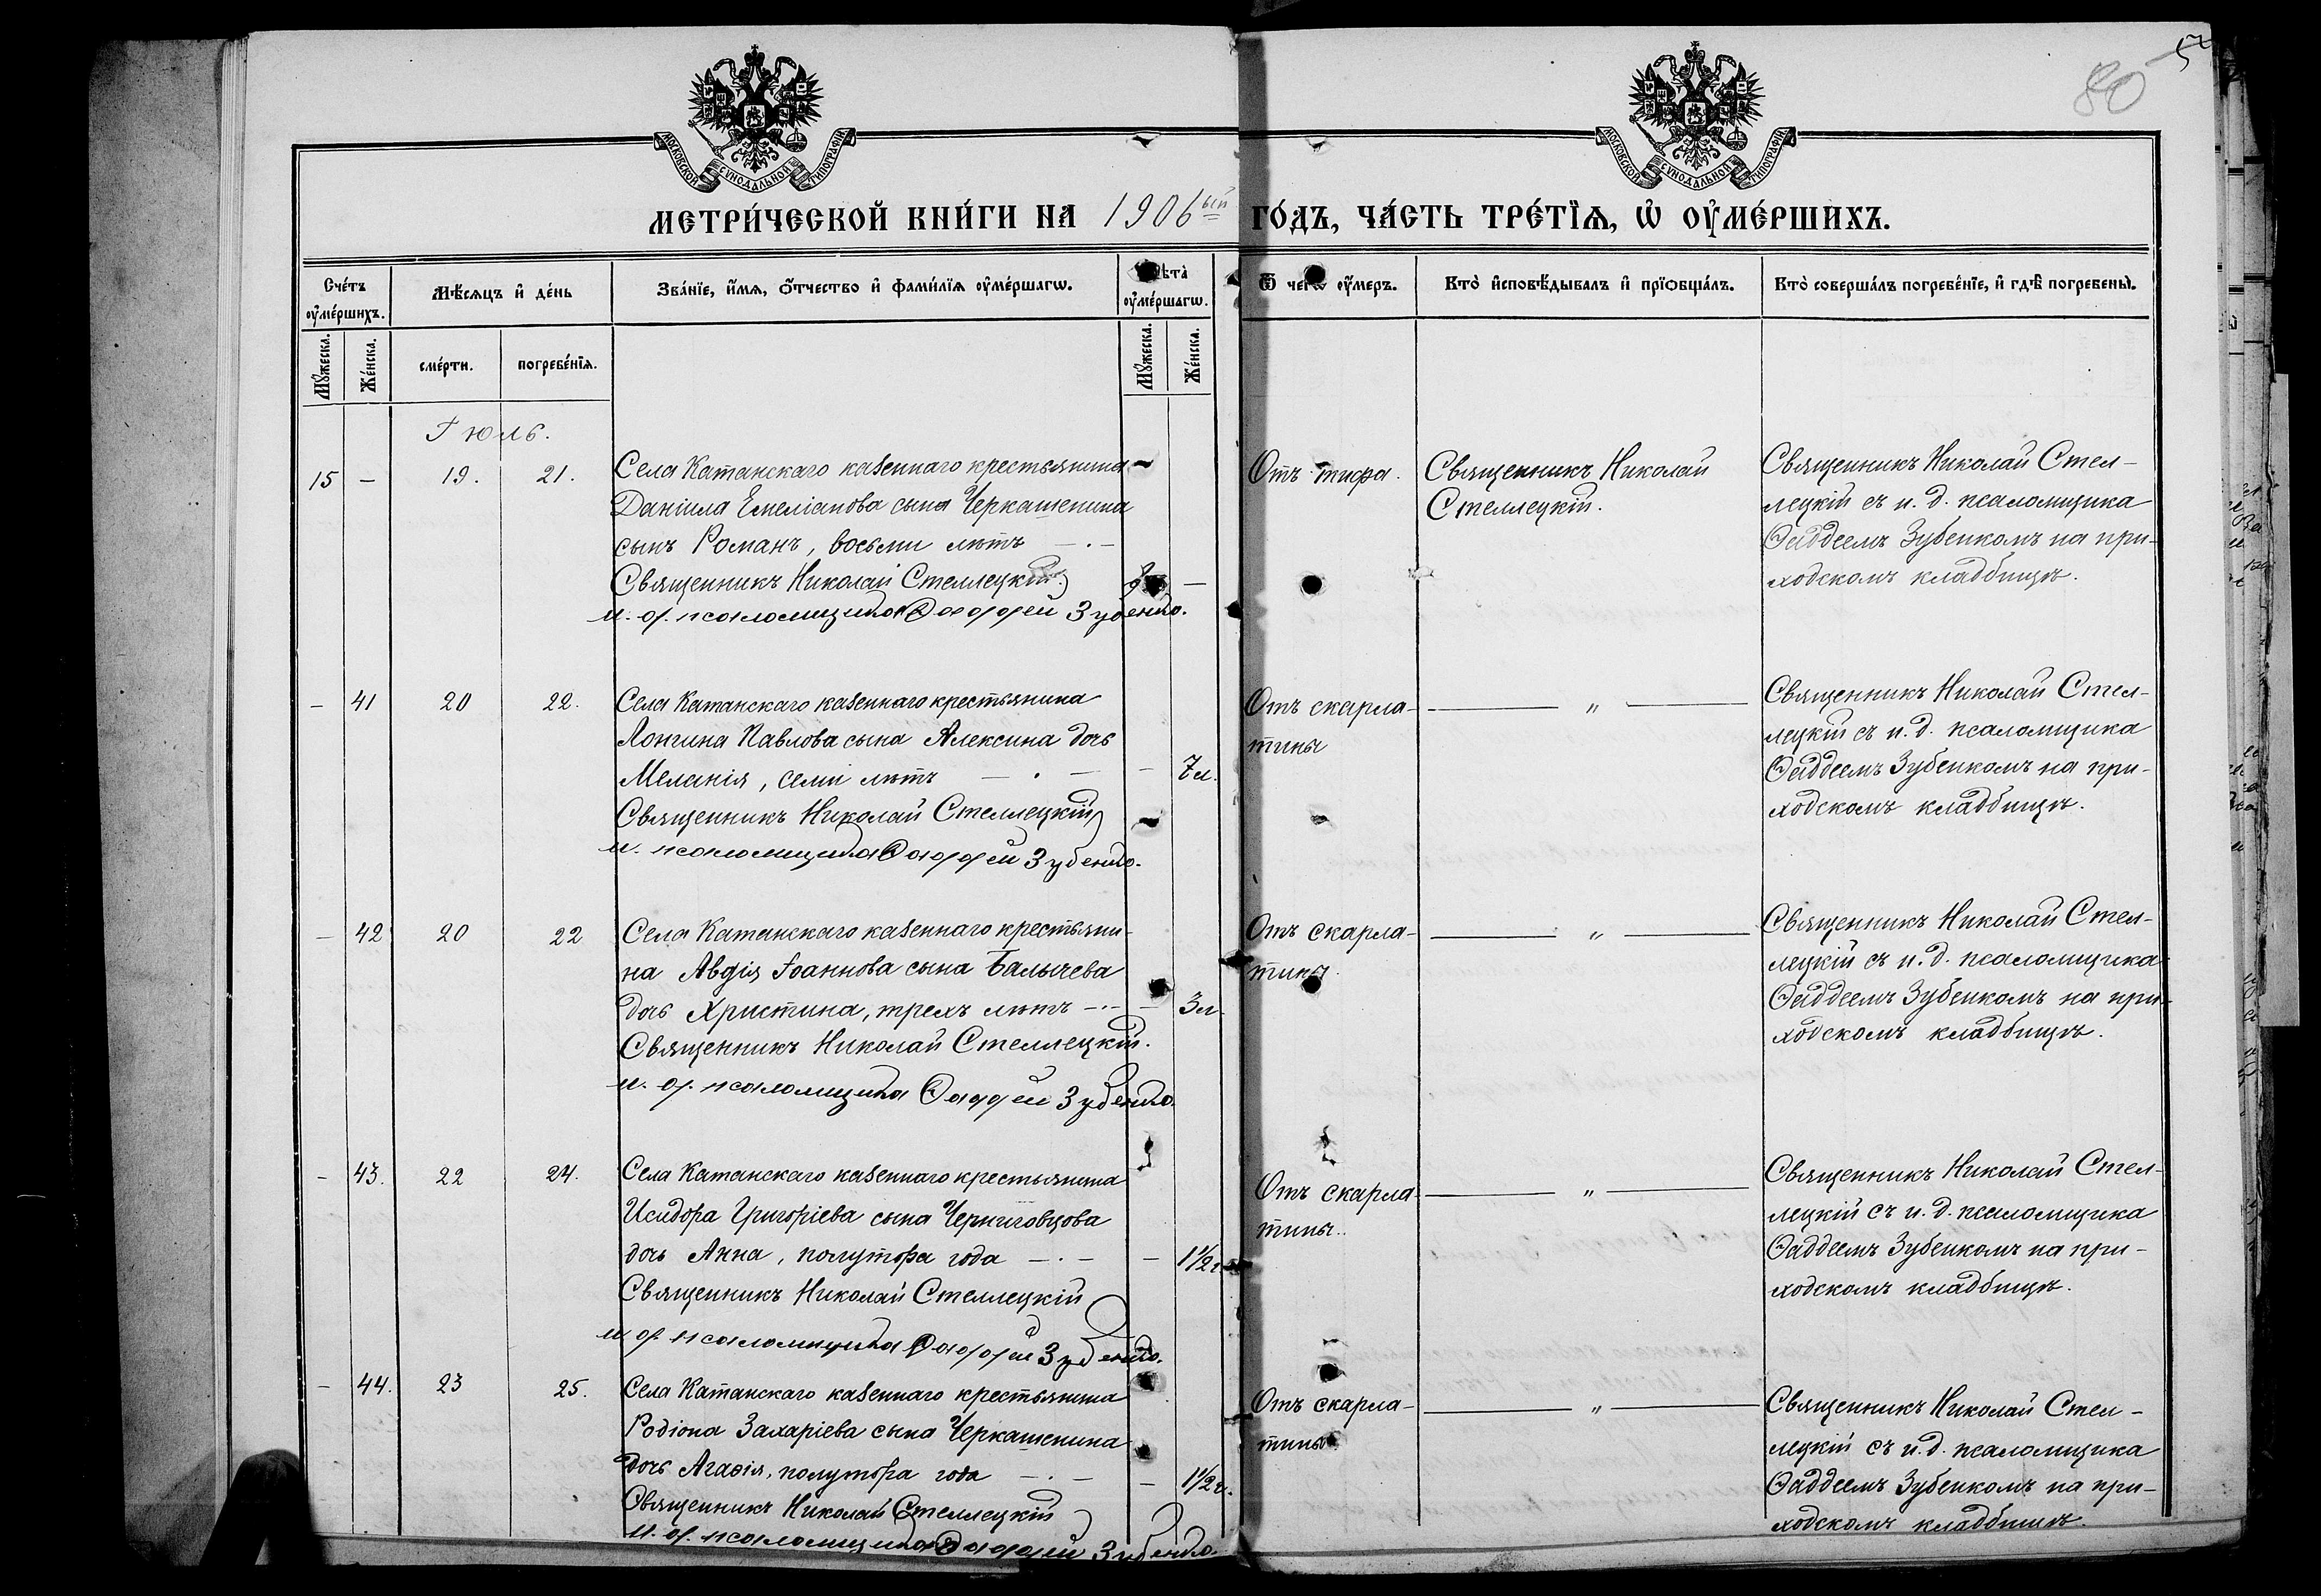 80
МОСКОВСКОЙ СѴНОДАЛЬНОЙ ТИПОГРАФІИ
МОСКОВСКОЙ СѴНОДАЛЬНОЙ ТИПОГРАФІИ
МЕТРИ́ЧЕСКОЙ КНИ́ГИ НА 1906ый ГО́ДЪ, ЧА́СТЬ ТРЕ́ТЇѦ, Ѡ҆ ОУ҆МЕ́РШИХЪ.
Сче́тъ оу҆ме́ршихъ.
Мѣ́сѧцъ и҆ де́нь
Зва́нїе, и҆́мѧ, ѻ҆́тчество и҆ фами́лїѧ оу҆ме́ршагѡ.
Лѣ́та оу҆ме́ршагѡ.
Ѿ чегѡ̀ оу҆́меръ.
Кто̀ и҆сповѣ́дывалъ и҆ прїѻбща́лъ.
Кто̀ соверша́лъ погребе́нїе, и҆ гдѣ̀ погребены̀.
Мꙋ́жеска.
Же́нска.
сме́рти.
погребе́нїѧ.
Мꙋ́жеска.
Же́нска.
Іюль.
15 – 19. 21.
Села Катанскаго казеннаго крестьянина
Даніила Емеліанова сына Черкашенина
сынъ Романъ, восьми лѣтъ — . —
Священникъ Николай Стеллецкій
и. д. псаломщика Ѳаддей Зубенко.
8 —
Отъ тифа.
Священникъ Николай
Стеллецкій.
Священникъ Николай Стел-
лецкій съ и. д. псаломщика
Ѳаддеемъ Зубенкомъ на при-
ходскомъ кладбищѣ.
– 41 20 22.
Села Катанскаго казеннаго крестьянина
Лонгина Павлова сына Алексина дочь
Меланія, семи лѣтъ — . —
Священникъ Николай Стеллецкій
и. псаломщика Ѳаддей Зубенко.
– 7л.
Отъ скарла-
тины
— " —
Священникъ Николай Стел-
лецкій съ и. д. псаломщика
Ѳаддеемъ Зубенкомъ на при-
ходскомъ кладбищѣ.
– 42 20 22
Села Катанскаго казеннаго крестьяни-
на Авдія Іоаннова сына Балычева
дочь Христина, трехъ лѣтъ — . —
Священникъ Николай Стеллецкій.
и. д. псаломщика Ѳаддей Зубенко.
– 3л.
Отъ скарла-
тины.
— " —
Священникъ Николай Стел-
лецкій съ и. д. псаломщика
Ѳаддеемъ Зубенкомъ на при-
ходскомъ кладбищѣ.
– 43. 22 24.
Села Катанскаго казеннаго крестьянина
Исидора Григоріева сына Черниговцова
дочь Анна, полутора года — . —
Священникъ Николай Стеллецкій
и д псаломщика Ѳаддей Зубенко.
– 1 1/2 г.
Отъ скарла-
тины.
— " —
Священникъ Николай Стел-
лецкій съ и. д. псаломщика
Ѳаддеемъ Зубенкомъ на при-
ходскомъ кладбищѣ.
– 44. 23 25.
Села Катанскаго казеннаго крестьянина
Родіона Захаріева сына Черкашенина
дочь Агаѳія, полутора года — . —
Священникъ Николай Стеллецкій
и. д. псаломщика Ѳаддей Зубенко.
– 1 1/2 г.
Отъ скарла-
тины
— " —
Священникъ Николай Стел-
лецкій съ и. д. псаломщика
Ѳаддеемъ Зубенкомъ на при-
ходскомъ кладбищѣ.